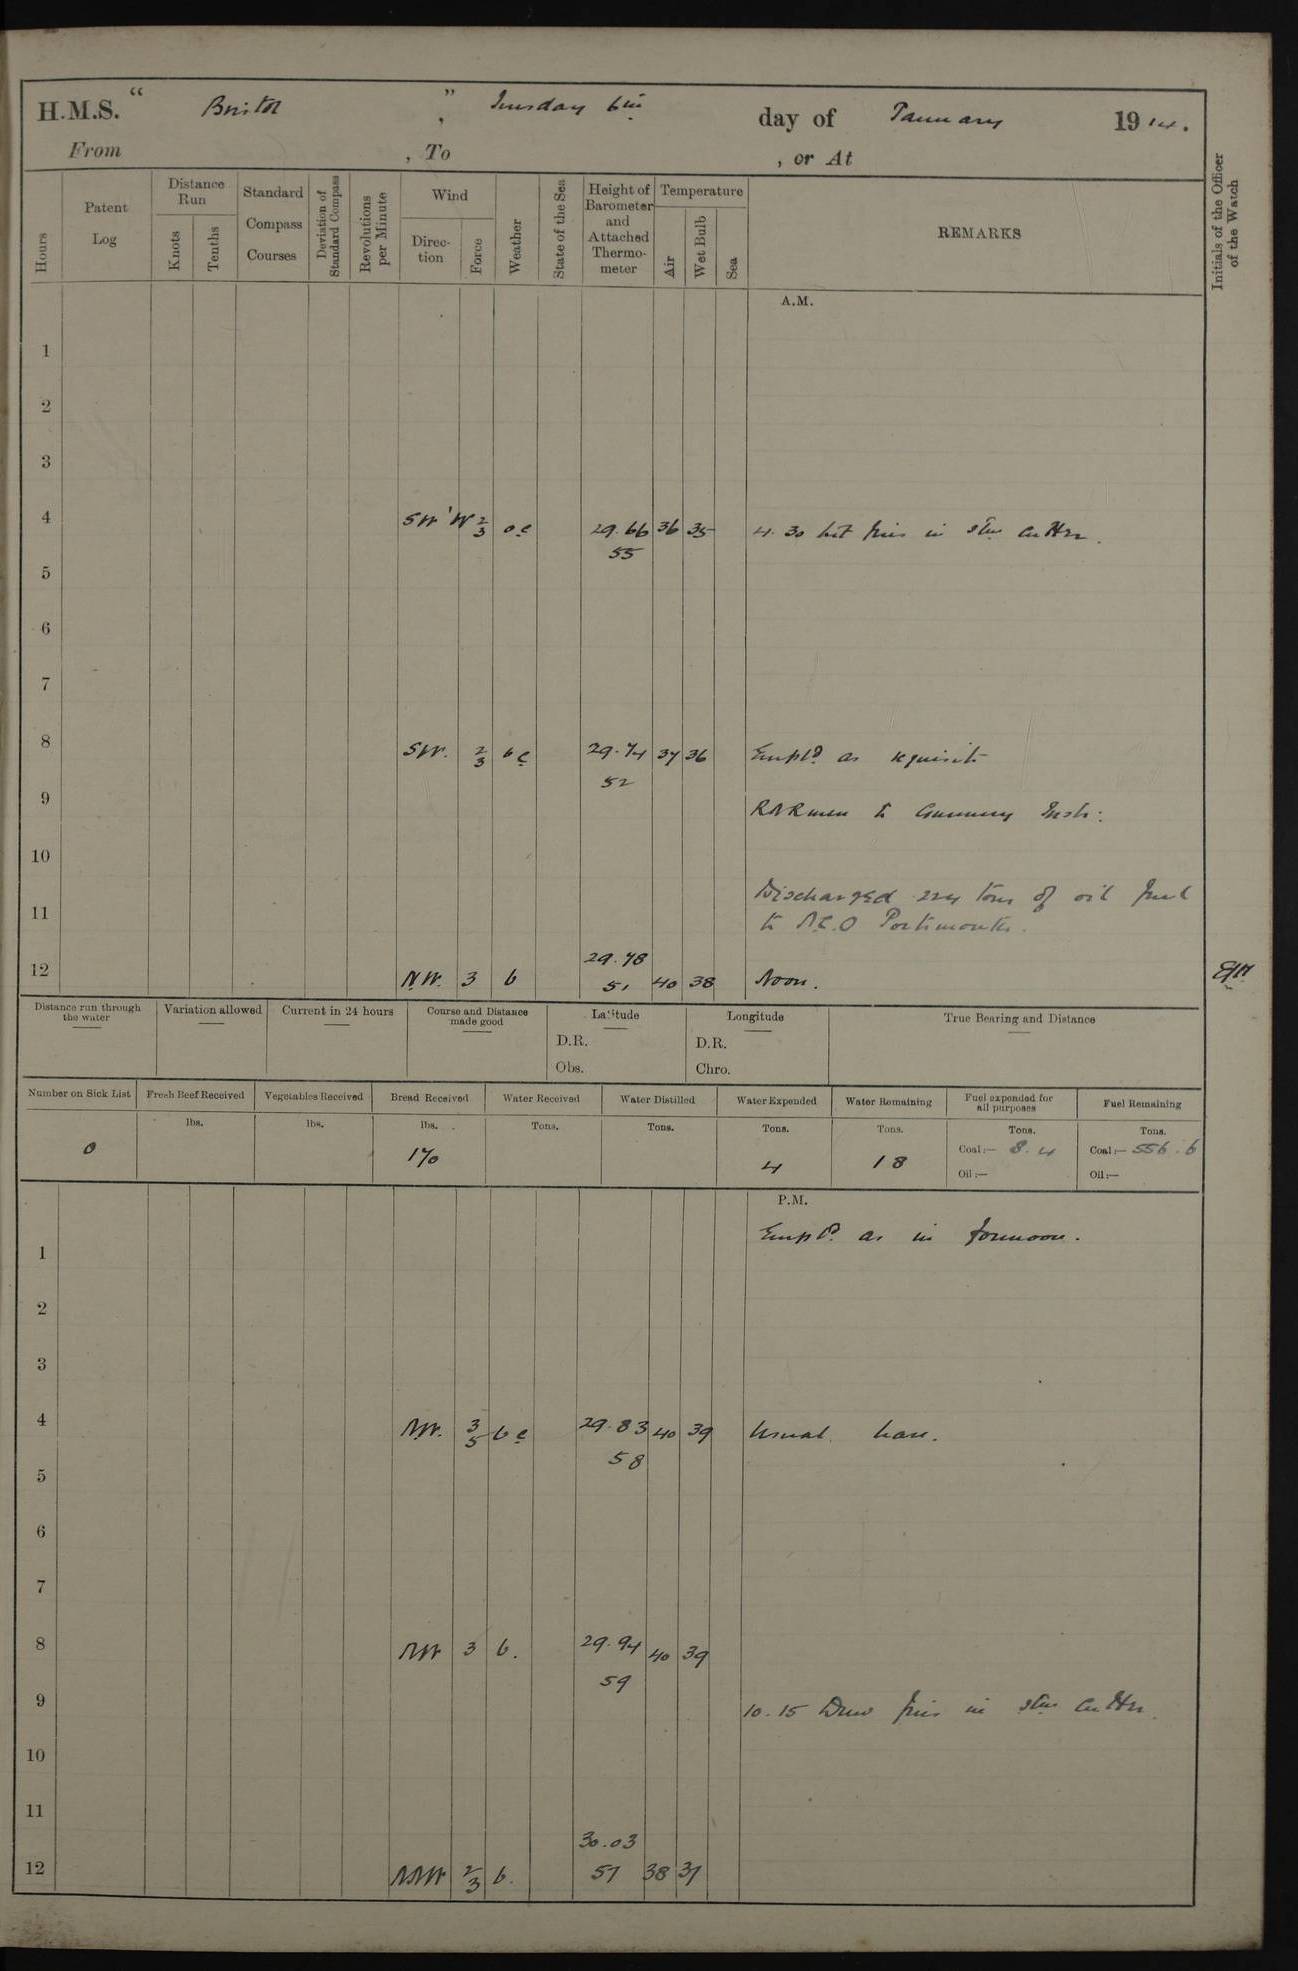 H.M.S. “ Bristol ” , Tuesday 6th day of January 1914.
From , To , or At
Hours
Patent Log
Distance Run
Knots
Tenths
Standard Compass Courses
Deviation of Standard Compass
Revolutions per Minute
Wind
Direc-tion
Force
Weather
State of the Sea
Height of Barometer and Attached Thermo-meter
Temperature
Air
Wet Bulb
Sea
REMARKS
Initials of the Officer of the Watch
A.M.
1
2
3
4 SW'W 2/3 oc 29.66 36 35 4.30 Lit fires in stm cutter.
55
5
6
7
8 SW. 2/3 bc 29.74 37 36 Empld as requisite
52
9 RNR men to Gunnery Instr:
10
Discharged 224 tons of oil fuel
11 to N.S.O Portsmouth.
29.78
12 NW. 3 b 51 40 38 Noon.
Distance run through the water
Variation allowed
Current in 24 hours
Course and Distance made good
Latitude
D.R.
Obs.
Longitude
D.R.
Chro.
True Bearing and Distance
Number on Sick List Fresh Beef Received Vegetables Received Bread Received Water Received Water Distilled Water Expended Water Remaining Fuel expended for all purposes Fuel Remaining
lbs. lbs. lbs. Tons. Tons. Tons. Tons. Tons. Tons.
0 170 4 18 Coal:— 8.4 Coal:— 556.6
Oil:— Oil:—
P.M.
Empld as in forenoon.
1
2
3
4 NW. 3/5 bc 29.83 40 39 Usual leave.
58
5
6
7
8 NW 3 b. 29.94 40 39
59
9 10.15 Drew fires in stm cutter.
10
11
30.03
12 NNW 2/3 b. 57 38 37